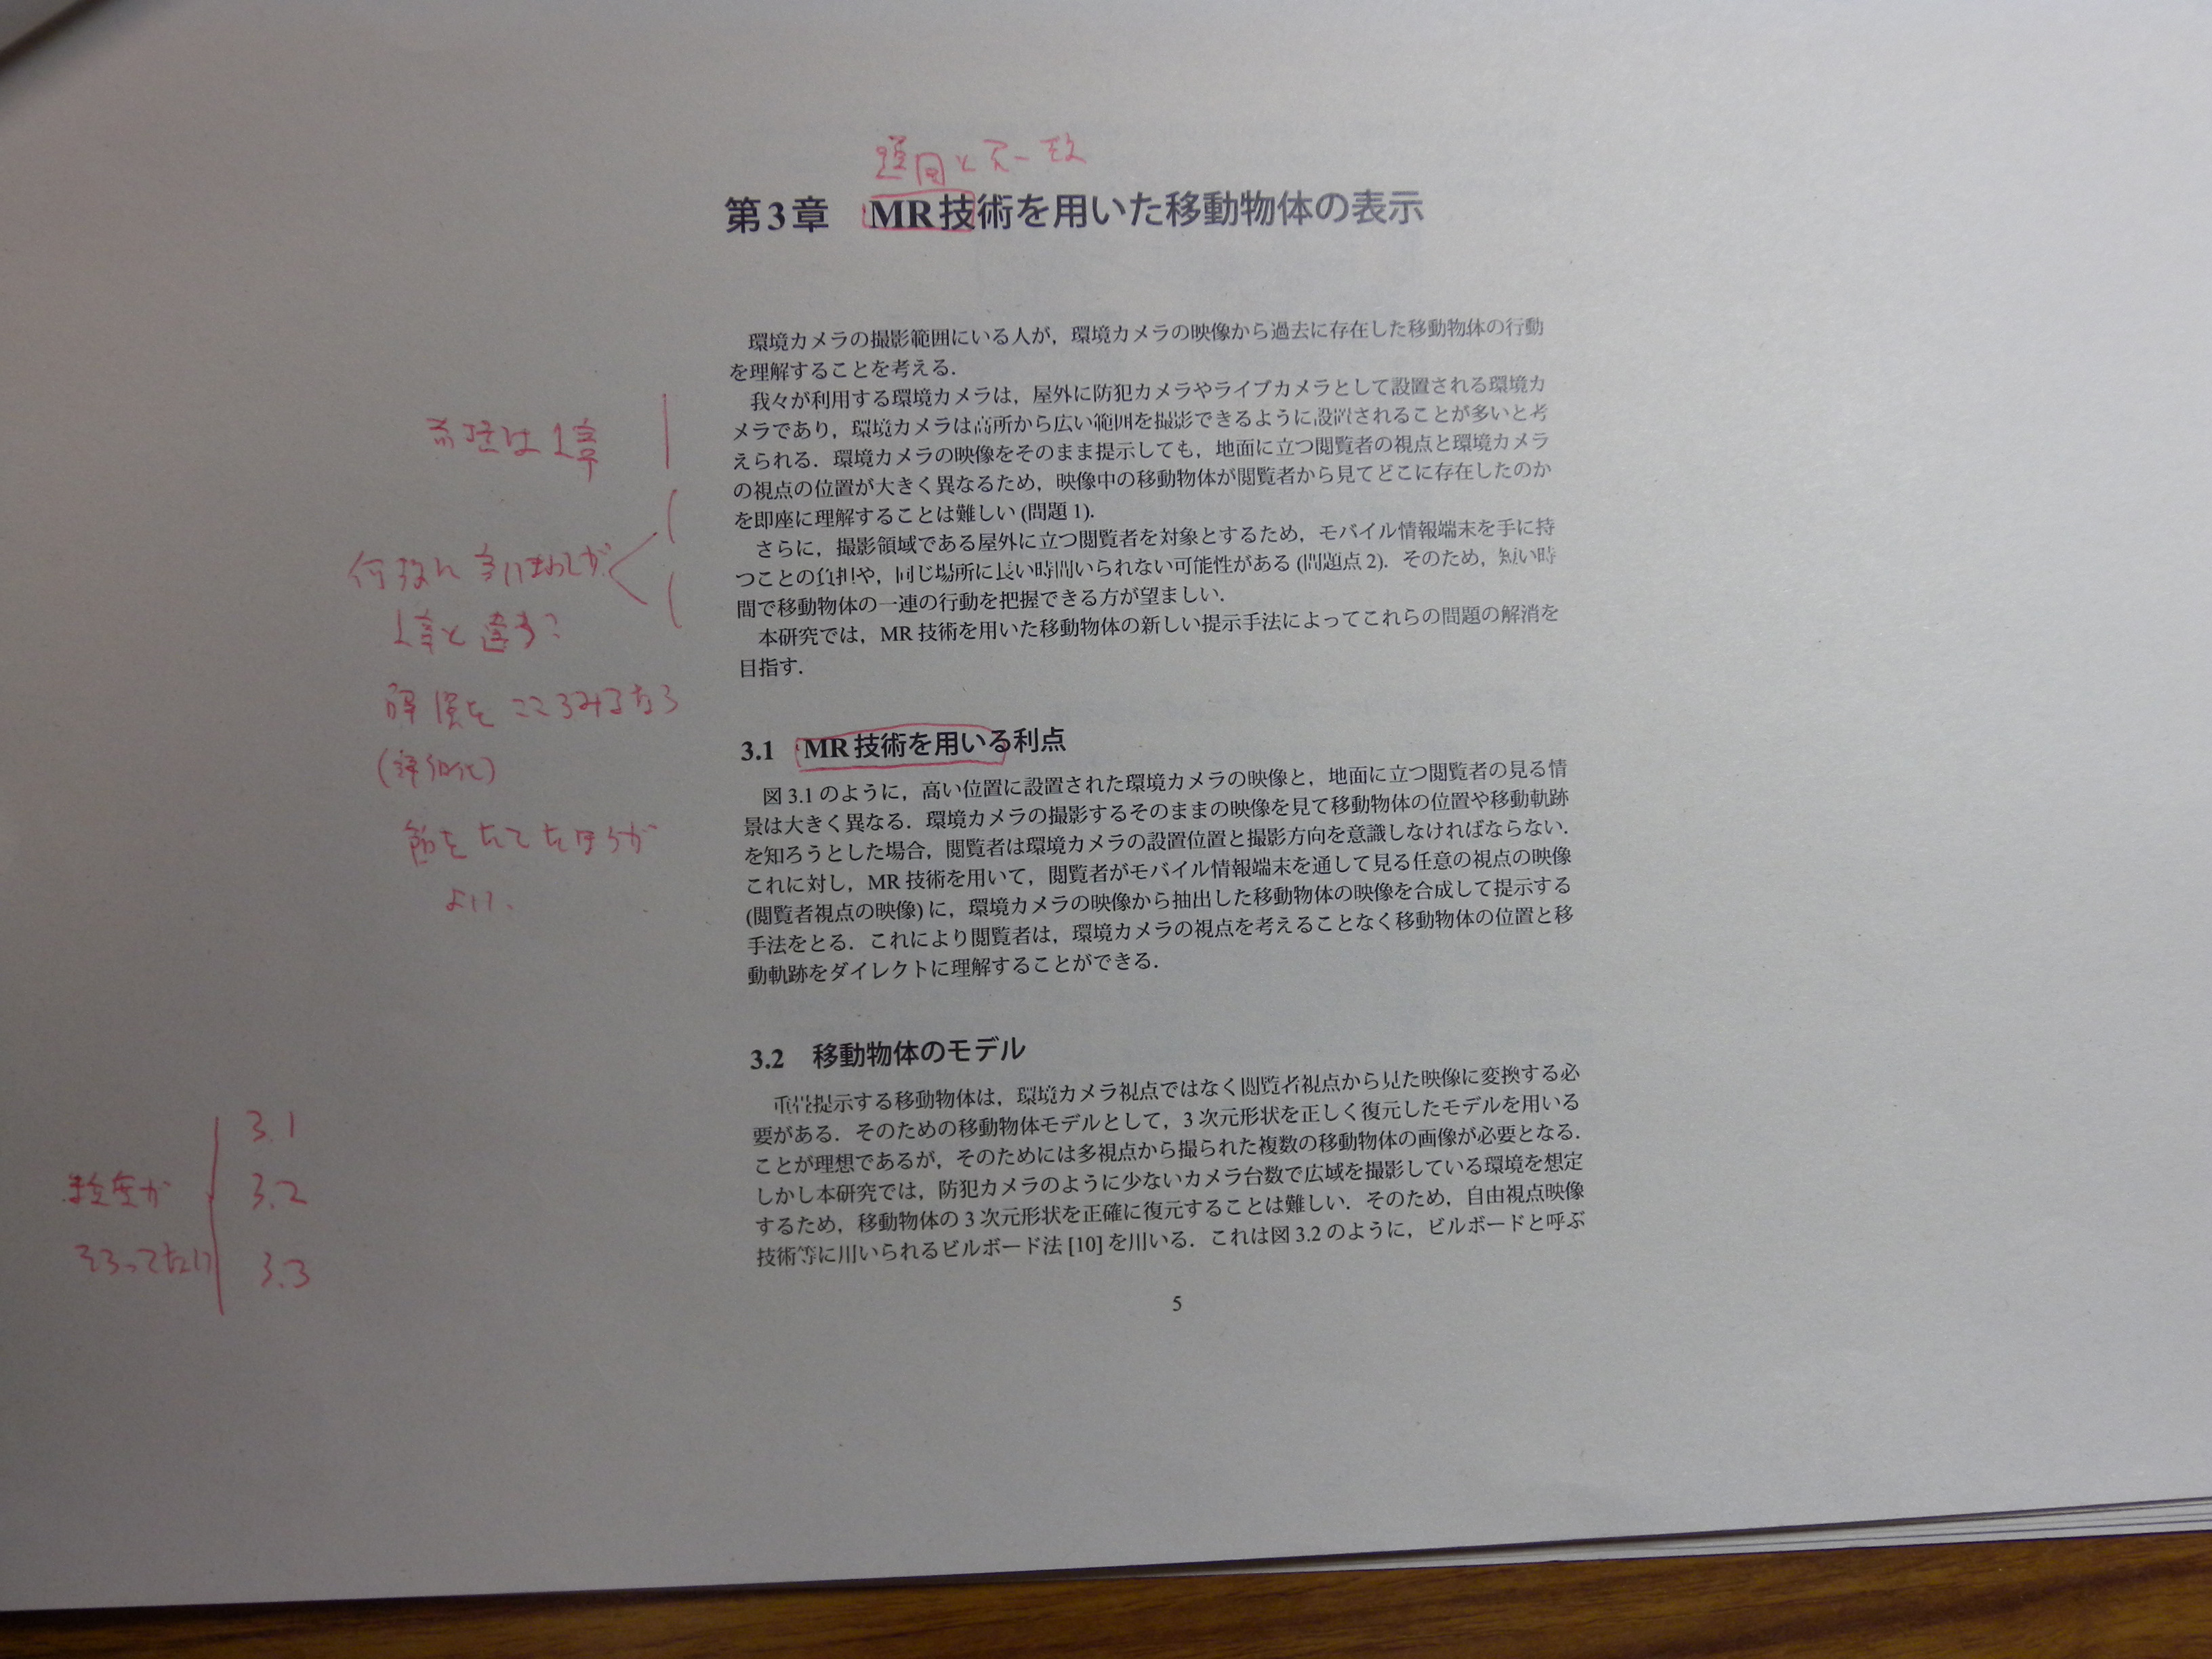 題目と不一致
第3章 MR技術を用いた移動物体の表示
環境カメラの撮影範囲にいる人が，環境カメラの映像から過去に存在した移動物体の行動
を理解することを考える．
我々が利用する環境カメラは，屋外に防犯カメラやライブカメラとして設置される環境カ
メラであり，環境カメラは高所から広い範囲を撮影できるように設置されることが多いと考
えられる．環境カメラの映像をそのまま提示しても，地面に立つ閲覧者の視点と環境カメラ
の視点の位置が大きく異なるため，映像中の移動物体が閲覧者から見てどこに存在したのか
を即座に理解することは難しい (問題 1).
さらに，撮影領域である屋外に立つ閲覧者を対象とするため，モバイル情報端末を手に持
つことの負担や，同じ場所に長い時間いられない可能性がある (問題点 2). そのため，短い時
間で移動物体の一連の行動を把握できる方が望ましい．
本研究では，MR 技術を用いた移動物体の新しい提示手法によってこれらの問題の解消を
目指す．
は1章
何故に言いまわしが
1章と違う?
解 をこころみるなら
(詳細化)
節をたてたほうが
よい、
3.1 MR技術を用いる利点
図 3.1 のように，高い位置に設置された環境カメラの映像と，地面に立つ閲覧者の見る情
景は大きく異なる．環境カメラの撮影するそのままの映像を見て移動物体の位置や移動軌跡
を知ろうとした場合，閲覧者は環境カメラの設置位置と撮影方向を意識しなければならない．
これに対し，MR 技術を用いて，閲覧者がモバイル情報端末を通して見る任意の視点の映像
(閲覧者視点の映像) に，環境カメラの映像から抽出した移動物体の映像を合成して提示する
手法をとる．これにより閲覧者は，環境カメラの視点を考えることなく移動物体の位置と移
動軌跡をダイレクトに理解することができる．
3.2 移動物体のモデル
重畳提示する移動物体は，環境カメラ視点ではなく閲覧者視点から見た映像に変換する必
要がある．そのための移動物体モデルとして，3 次元形状を正しく復元したモデルを用いる
ことが理想であるが，そのためには多視点から撮られた複数の移動物体の画像が必要となる．
しかし本研究では，防犯カメラのように少ないカメラ台数で広域を撮影している環境を想定
するため，移動物体の 3 次元形状を正確に復元することは難しい．そのため，自由視点映像
技術等に用いられるビルボード法 [10] を用いる．これは図 3.2 のように，ビルボードと呼ぶ
粒度が
そろってない
3.1
3.2
3.3
5